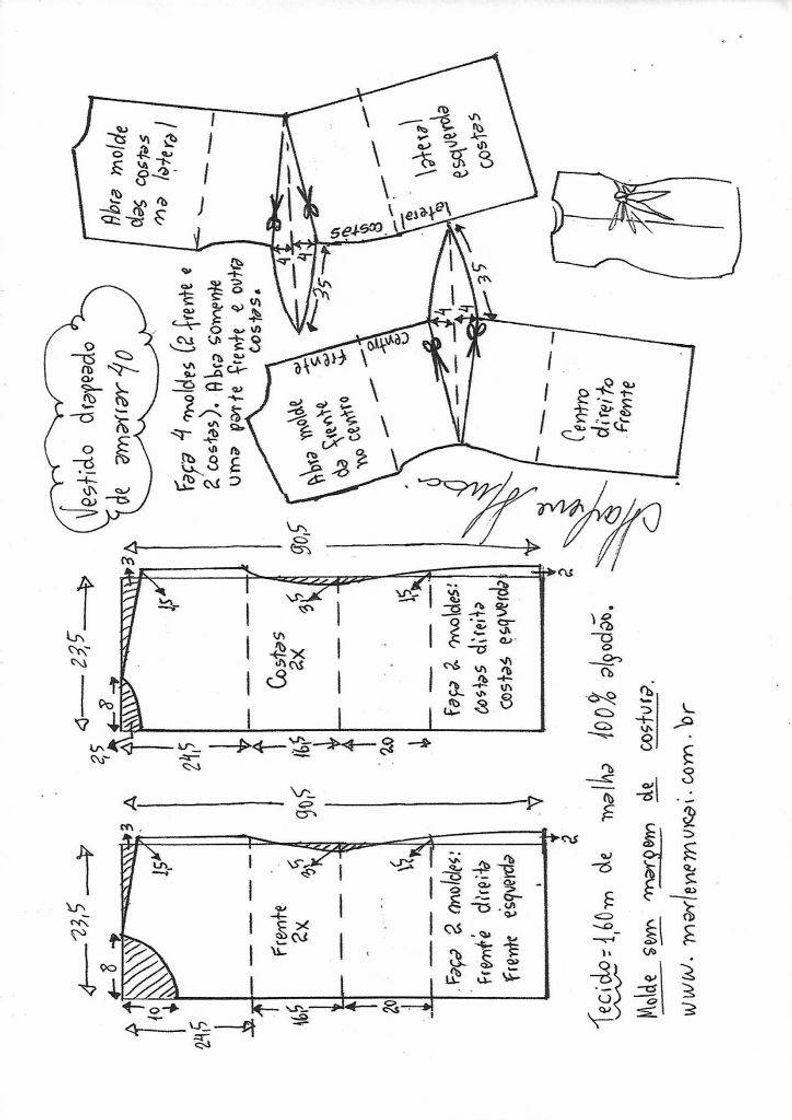 Vestido drapeado
de amarrar 40
Faça 4 moldes (2 frente e
2 costas). Abra somente
uma parte frente e outra
costas.
Abra molde
das costas
na lateral
lateral
esquerda
costas
costas
lateral
4
4
35
Abra molde
da frente
no centro
Frente
Centro
4
4
35
Centro
direito
frente
Marlene Mukai
23,5
8
10
24,5
16,5
20
3
1,5
3,5
1,5
2
90,5
Frente
2X
Faça 2 moldes:
frente direita
Frente esquerda
23,5
8
2,5
24,5
16,5
20
3
1,5
3,5
1,5
2
90,5
Costas
2X
Faça 2 moldes:
Costas direita
costas esquerda
Tecido=1,60m de malha 100% algodão.
Molde sem margem de costura.
www.marlenemukai.com.br